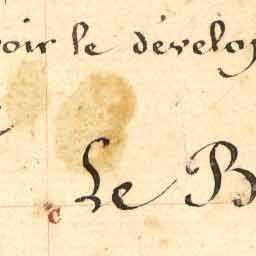 oir le dévelop
Le B
c